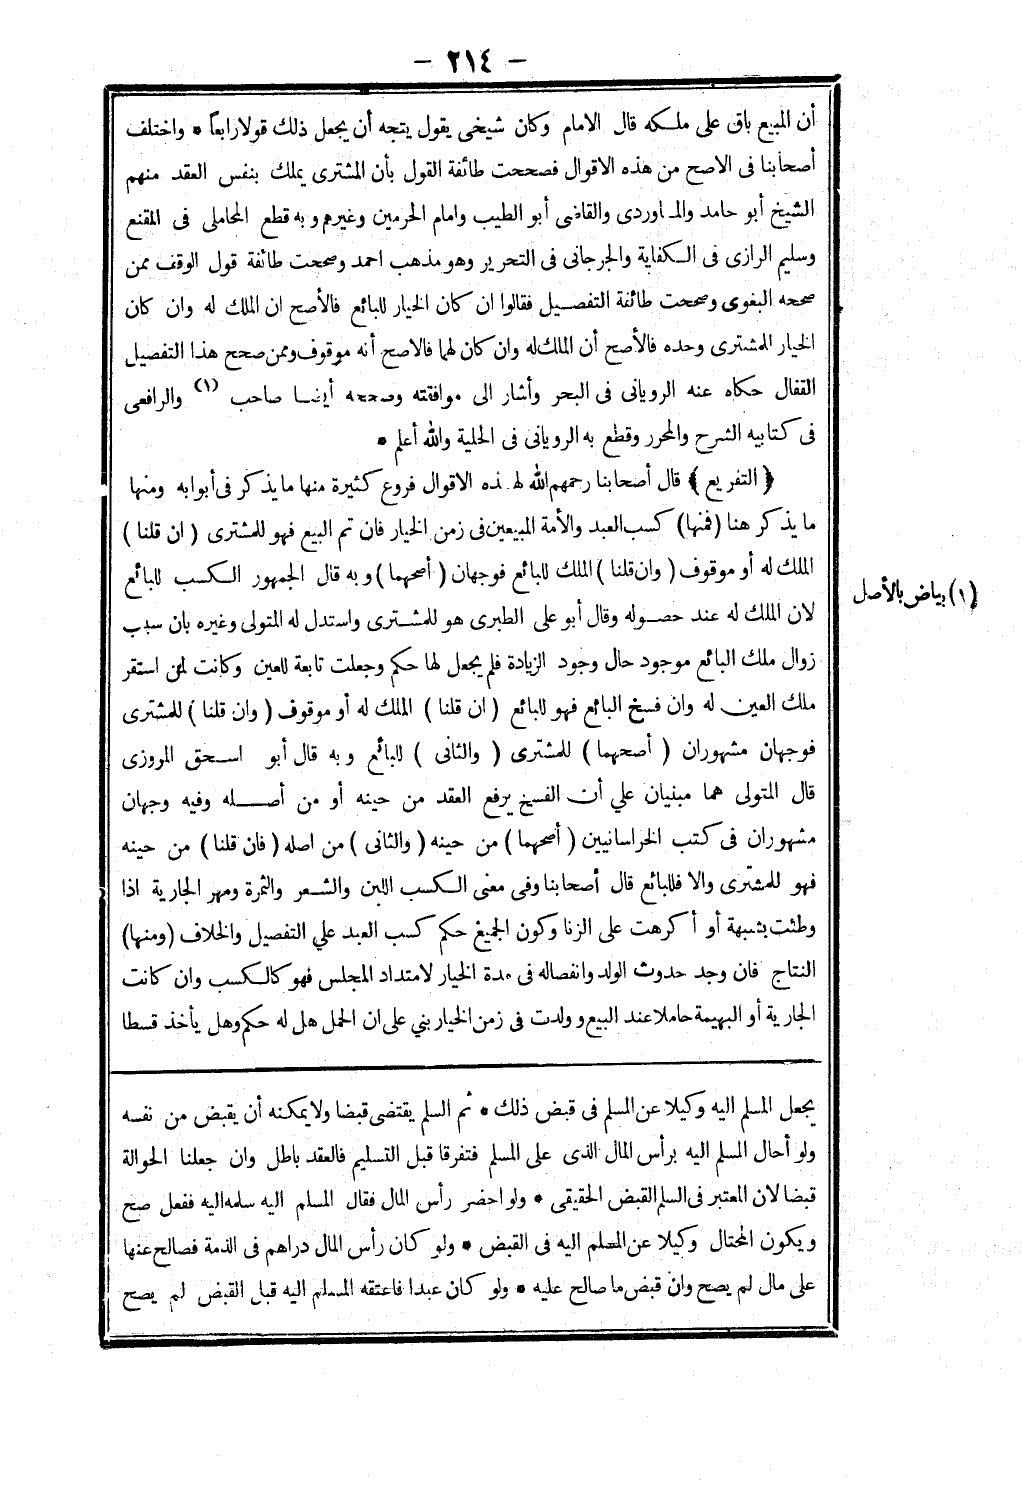 - ٢١٤ -
أن المبيع باق على ملكه قال الامام وكان شيخى يقول يتجه أن يجعل ذلك قولا رابعاً * واختلف
أصحابنا فى الاصح من هذه الاقوال فصححت طائفة القول بأن المشترى يملك بنفس العقد منهم
الشيخ أبو حامد والماوردى والقاضى أبو الطيب وامام الحرمين وغيرهم وبه قطع المحاملى فى المقنع
وسليم الرازى فى الكفاية والجرجانى فى التحرير وهو مذهب احمد وصححت طائفة قول الوقف ممن
صححه البغوى وصححت طائفة التفصيل فقالوا ان كان الخيار للبائع فالأصح ان الملك له وان كان
الخيار للمشترى وحده فالأصح أن الملك له وان كان لهما فالاصح أنه موقوف وممن صحح هذا التفصيل
القفال حكاه عنه الرويانى فى البحر وأشار الى موافقته وصححه أيضا صاحب (١) والرافعى
فى كتابيه الشرح والمحرر وقطع به الرويانى فى الحلية والله أعلم *
﴿ التفريع ﴾ قال أصحابنا رحمهم الله لهذه الاقوال فروع كثيرة منها ما يذكر فى أبوابه ومنها
ما يذكر هنا (فمنها) كسب العبد والأمة المبيعين فى زمن الخيار فان تم البيع فهو للمشترى ( ان قلنا )
الملك له أو موقوف ( وان قلنا ) الملك للبائع فوجهان ( أصحهما ) وبه قال الجمهور الكسب للبائع
(١) بياض بالأصل
لان الملك له عند حصوله وقال أبو على الطبرى هو للمشترى واستدل له المتولى وغيره بان سبب
زوال ملك البائع موجود حال وجود الزيادة فلم يجعل لها حكم وجعلت تابعة للعين وكانت لمن استقر
ملك العين له وان فسخ البائع فهو للبائع ( ان قلنا ) الملك له أو موقوف ( وان قلنا ) للمشترى
فوجهان مشهوران ( أصحهما ) للمشترى ( والثانى ) للبائع وبه قال أبو اسحق المروزى
قال المتولى هما مبنيان علي أن الفسخ يرفع العقد من حينه أو من أصله وفيه وجهان
مشهوران فى كتب الخراسانيين ( أصحهما ) من حينه ( والثانى ) من اصله ( فان قلنا ) من حينه
فهو للمشترى والا فللبائع قال أصحابنا وفى معنى الكسب اللبن والشعر والثمرة ومهر الجارية اذا
وطئت بشبهة أو أكرهت على الزنا وكون الجميع حكم كسب العبد علي التفصيل والخلاف (ومنها)
النتاج فان وجد حدوث الولد وانفصاله فى مدة الخيار لامتداد المجلس فهو كالكسب وان كانت
الجارية أو البهيمة حاملا عند البيع وولدت فى زمن الخيار بني على ان الحمل هل له حكم وهل يأخذ قسطا
يجعل المسلم اليه وكيلا عن المسلم فى قبض ذلك * ثم السلم يقتضى قبضا ولا يمكنه أن يقبض من نفسه
ولو أحال المسلم اليه برأس المال الذى على المسلم فتفرقا قبل التسليم فالعقد باطل وان جعلنا الحوالة
قبضا لان المعتبر فى السلم القبض الحقيقى * ولو احضر رأس المال فقال المسلم اليه سلمه اليه ففعل صح
ويكون المحتال وكيلا عن المسلم اليه فى القبض * ولو كان رأس المال دراهم فى الذمة فصالح عنها
على مال لم يصح وان قبض ما صالح عليه * ولو كان عبدا فاعتقه المسلم اليه قبل القبض لم يصح